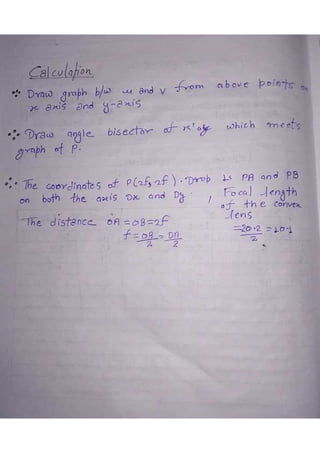 Calculation
Draw graph b/w u and v from above points on
x axis and y-axis
Draw angle bisector of x'oy which meets
graph at P.
The coordinates of P(2f, 2f). Drop Ls PA and PB
on both the axis Ox and Oy.
, Focal length
of the convex
lens
The distance OA = OB = 2f
f = OB/2 = OA/2
= 20.2/2 = 10.1